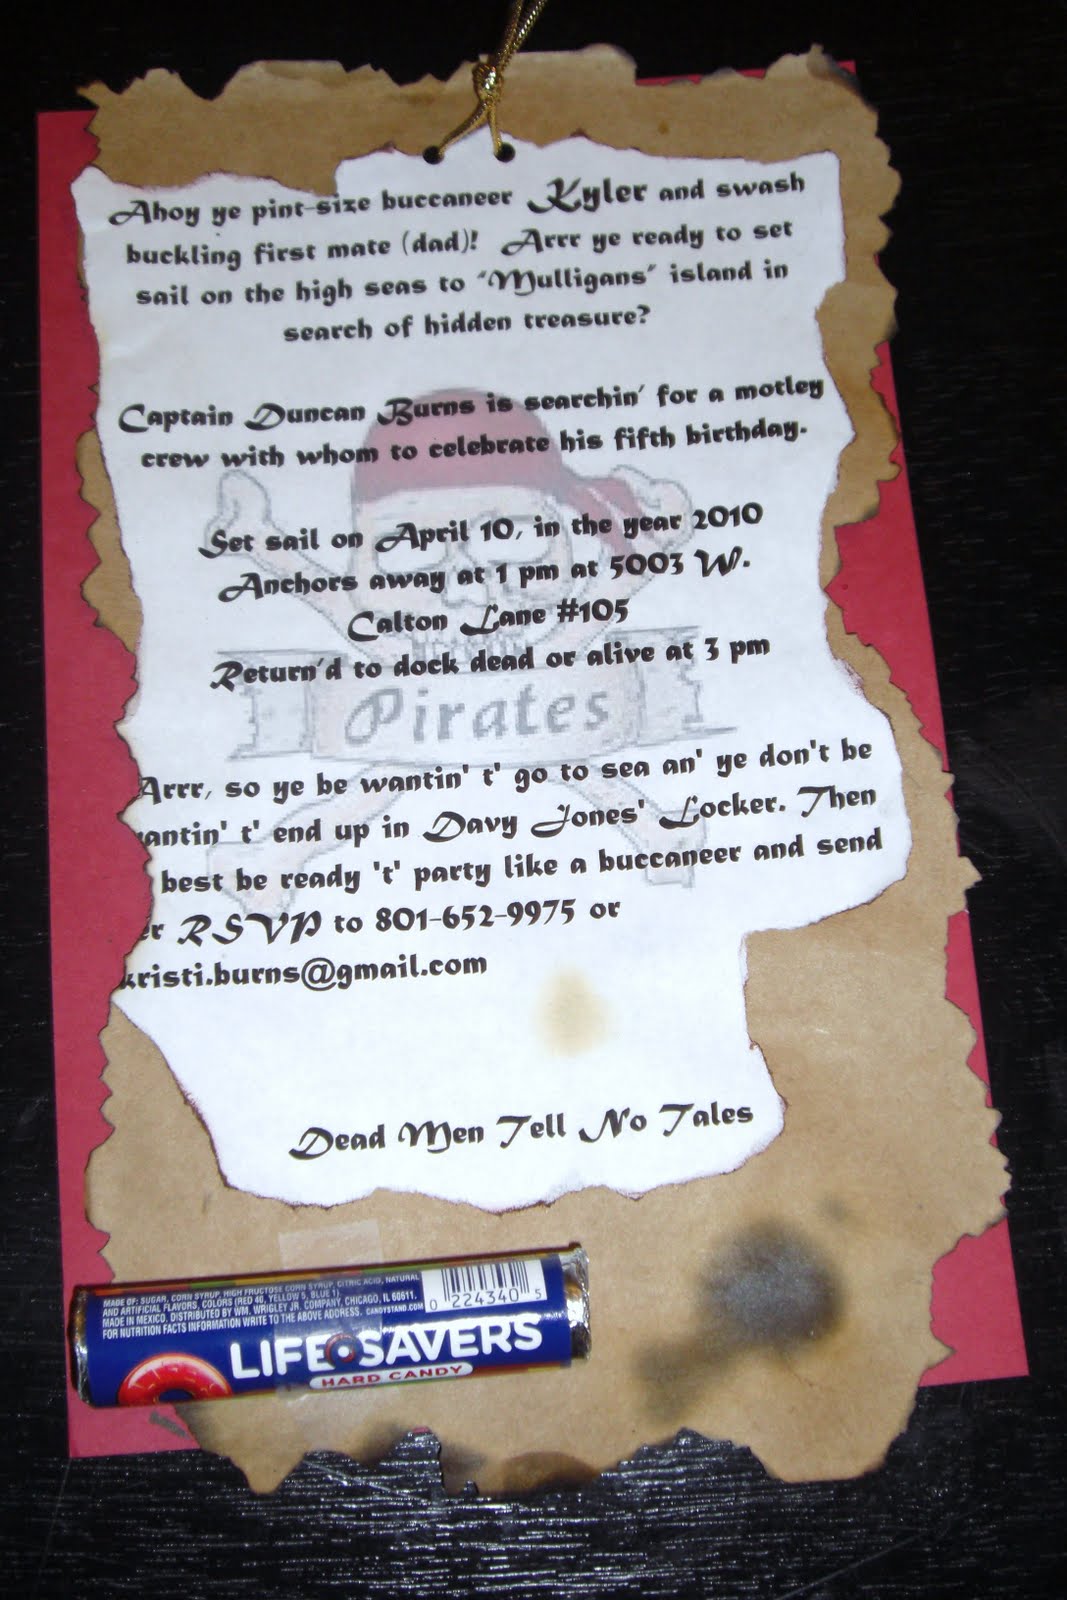 Ahoy ye pint-size buccaneer Kyler and swash
buckling first mate (dad)! Arrr ye ready to set
sail on the high seas to "Mulligans" island in
search of hidden treasure?
Captain Duncan Burns is searchin' for a motley
crew with whom to celebrate his fifth birthday.
Set sail on April 10, in the year 2010
Anchors away at 1 pm at 5003 W.
Calton Lane #105
Return'd to dock dead or alive at 3 pm
Pirates
Arrr, so ye be wantin' t' go to sea an' ye don't be
antin' t' end up in Davy Jones' Locker. Then
best be ready 't' party like a buccaneer and send
er RSVP to 801-652-9975 or
kristi.burns@gmail.com
Dead Men Tell No Tales
MADE OF: SUGAR, CORN SYRUP, HIGH FRUCTOSE CORN SYRUP, CITRIC ACID, NATURAL
AND ARTIFICIAL FLAVORS, COLORS (RED 40, YELLOW 5, BLUE 1).
MADE IN MEXICO. DISTRIBUTED BY WM. WRIGLEY JR. COMPANY, CHICAGO, IL 60611.
FOR NUTRITION FACTS INFORMATION WRITE TO THE ABOVE ADDRESS. CANDYSTAND.COM
0 224340 5
LIFE SAVERS
HARD CANDY